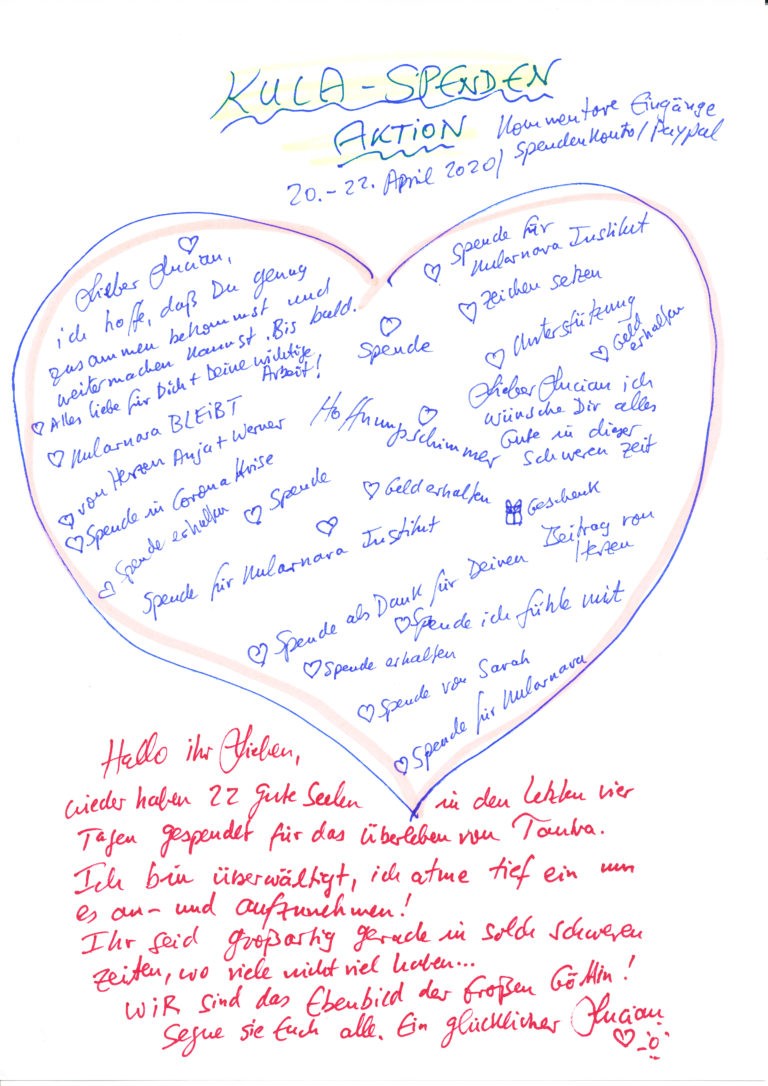 KULA-SPENDEN
AKTION
Kommentare Eingänge
20.-22. April 2020/ Spendenkonto/Paypal
Lieber Lucian,
ich hoffe, daß Du genug
zusammen bekommst und
weitermachen kannst. Bis bald.
Alles liebe für Dich + Deine wichtige
Arbeit!
Mularnava BLEIBT
von Herzen Anja + Werner
Spende in Corona Krise
Spende erhalten
Spende
Spende für Mularnava Institut
Spende
Hoffnungsschimmer
Geld erhalten
Spende für
Mularnava Institut
Zeichen setzen
Unterstützung
Geld
erhalten
Lieber Lucian ich
wünsche Dir alles
Gute in dieser
schweren Zeit
Geschenk
Spende als Dank für Deinen Beitrag von
Herzen
Spende ich fühle mit
Spende erhalten
Spende von Sarah
Spende für Mularnava
Hallo ihr Lieben,
wieder haben 22 gute Seelen in den letzten vier
Tagen gespendet für das Überleben von Tantra.
Ich bin überwältigt, ich atme tief ein um
es an- und aufzunehmen!
Ihr seid großartig gerade in solch schweren
Zeiten, wo viele nicht viel haben...
WIR sind das Ebenbild der Großen Göttin!
Segne sie Euch alle. Ein glücklicher Lucian